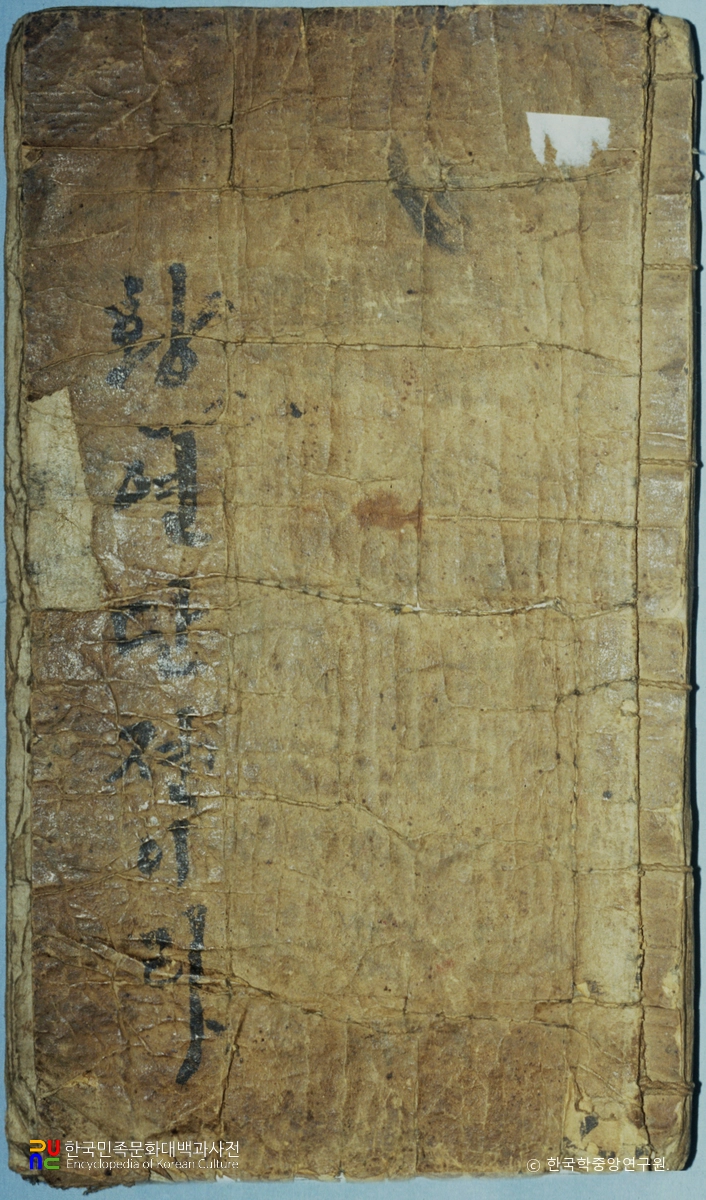 황열단젼이라
한국민족문화대백과사전
Encyclopedia of Korean Culture
© 한국학중앙연구원